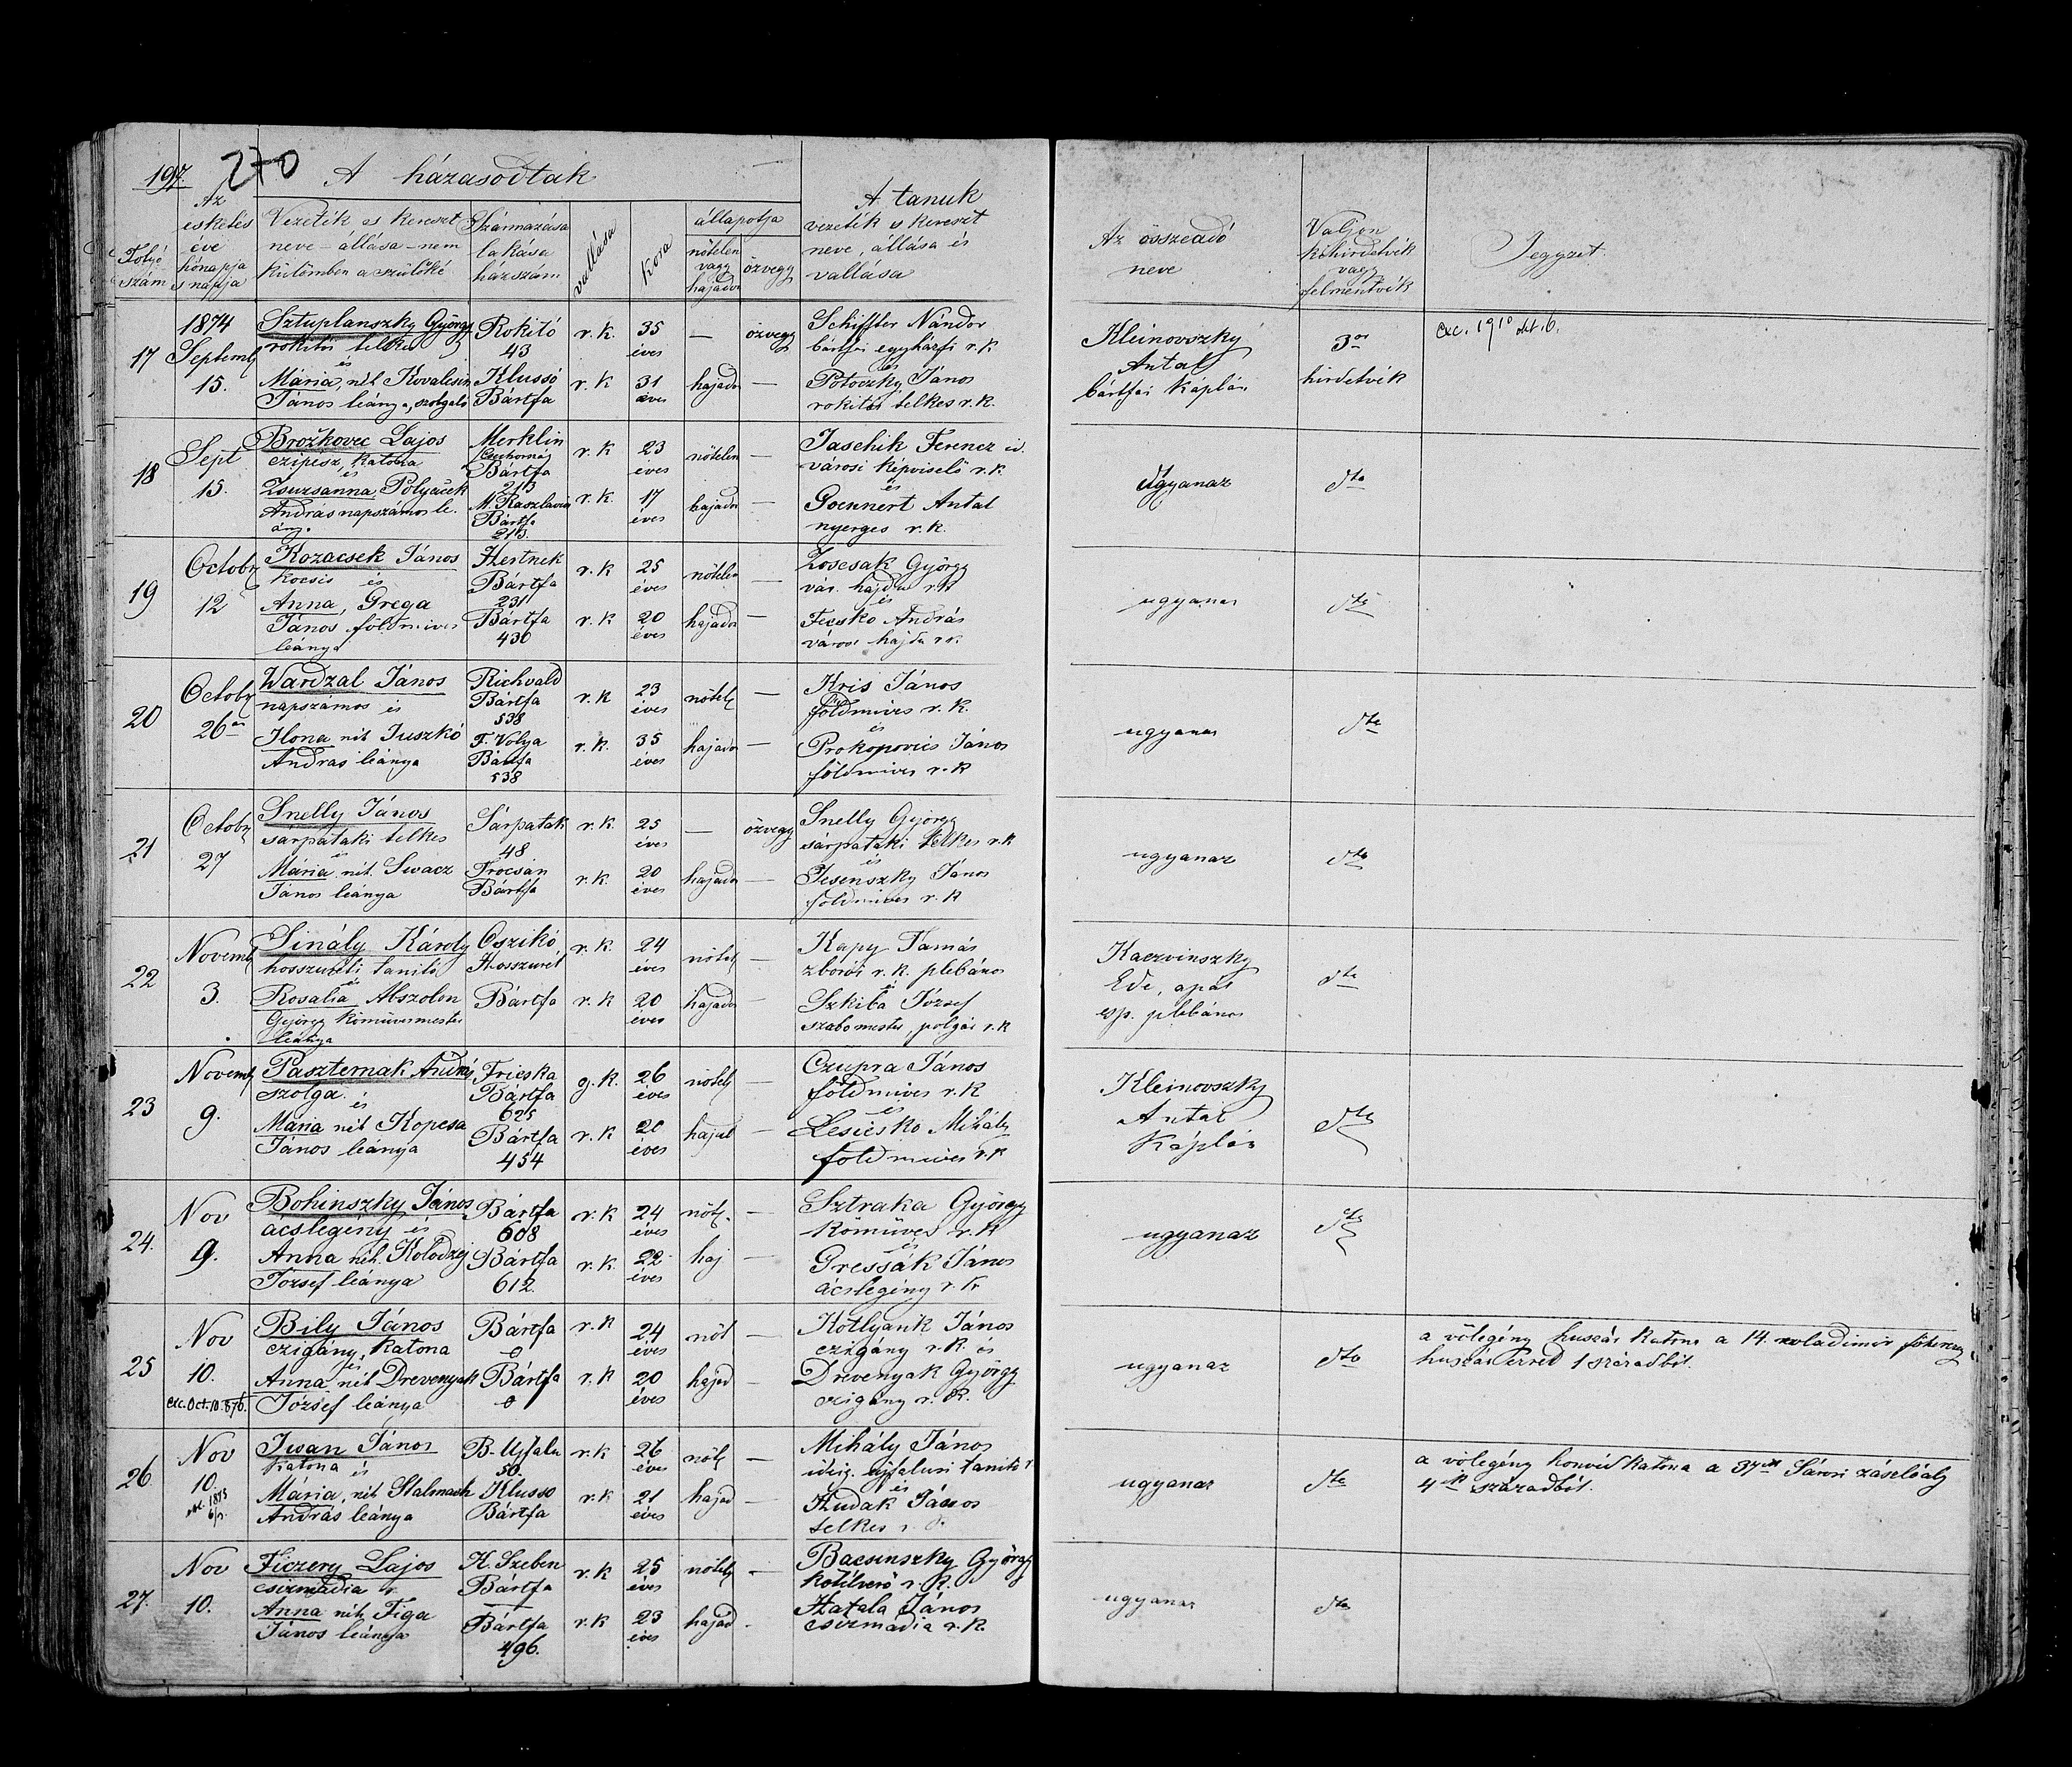 197. 270 A házasodtak
Az esketés éve hónapja s napja
Folyó szám
Vezeték és kereszt neve – állása – nem különben a szülőké
Származása lakása házszám
vallása
kora
állapotja
nőtelen vagy hajadon
özvegy
A tanuk
vezeték s kereszt neve, állása és vallása
Az összeadó neve
Valjon kihirdetvék vagy felmentvék
Jegyzet.
17
1874 Septemb 15.
Sztuplanszky György Rokitó r. k. 35 éves — özvegy
rokitói telkes 43
és
Mária, nét Kovalcsin Klussó r. k 31 éves hajadon —
János leánya, szolgáló Bártfa
Schiffter Nándor
bártfai egyházfi r. k
és
Potoczky János
rokitói telkes r. k.
Kleinovszky Antal bártfai káplán
3or hirdetvék
exc. 1910 okt. 6.
18
Sept 15.
Brožkovec Lajos Merklin r. k 23 éves nőtelen —
czipész, katona Csehorná
és Bártfa 213
Zsuzsanna, Polyacsek M. Raszlavicza r. k. 17 éves hajadon —
András napszámos le- Bártfa
ánya 213.
Jaschik Ferencz id.
városi képviselő r. k.
és
Goennert Antal
nyerges r. k.
ugyanaz
dto
19
Octobr 12
Kozacsek János Hertnek r. k 25 éves nőtelen —
kocsis és Bártfa 231
Anna, Grega Bártfa r. k 20 éves hajadon —
János földmives 430
leánya
Zoscsak György
vár. hajdu r. k
és
Fecsko András
városi hajdu r. k.
ugyanaz
dto
20
Octobr 26án
Wardzal János Richvald r. k 23 éves nőtel —
napszámos és Bártfa 538
Ilona nét Juszkó F. Volya r. k. 35 éves hajadon —
András leánya Bártfa 538
Kris János
földmives r. k.
és
Prokopovics János
földmives r. k
ugyanaz
dto
21
Octobr 27
Snelly János Sárpatak r. k. 25 éves — özvegy
sárpataki telkes 48
és
Mária, nét. Swacz Frocsán r. k. 20 éves hajadon —
János leánya Bártfa
Snelly György
sárpataki telkes r. k
és
Jesenszky János
földmives r. k
ugyanaz
dto
22
Novemb 3.
Sinály Károly Oszikó r. k. 24 éves nőtel —
hosszuréti tanitó Hosszurét
és
Rosalia Abszolon Bártfa r. k 20 éves hajadon —
György kőmüvesmester
leánya
Kapy Tamás
zborói r. k. plébános
és
Szkiba József
szabómester, polgár r. k
Kaczvinszky Ede, apát esp. plébános
dto
23
Novemb 9.
Paszternak Andráj Fricska g. k. 26 éves nőtel —
szolga. és Bártfa 625
Mária nét Kopcsa Bártfa r. k 20 éves hajad —
János leánya 454
Czupra János
földmives r. k
és
Lesicsko Mihály
földmives r. k
Kleinovszky Antal Káplán
dto
24.
Nov 9.
Bohinszky János Bártfa r. k 24 éves nőt. —
ácslegény és 608
Anna nét. Kolodzej Bártfa r. k. 22 éves haj —
József leánya 612.
Sztraka György
kőmüves r. k
és
Gressák János
ácslegény r. k
ugyanaz
dto
25
Nov 10.
exc. Oct. 10. 876.
Bily János Bártfa r. k 24 éves nőt —
czigány, katona 0
és
Anna nét Drevenyak Bártfa r. k 20 éves hajad —
József leánya 0
Kotlyarik János
czigány r. k. és
Drevenyak György
czigány r. k.
ugyanaz
dto
a vőlegény huszár katona a 14. wladimir főherczeg
huszárezred 1 századból.
26
Nov 10.
Iwan János B. Ujfalu r. k 26 éves nőt —
katona és 50.
Mária, nét Stalmach Klusso r. k 21 éves hajad —
András leánya Bártfa
Mihály János
ideig. ujfalusi tanitó r
és
Hudak János
telkes r. k
ugyanaz
dto
a vőlegény honvéd katona a 37ik Sárosi zászlóalj
4ik századból.
27.
Nov 10.
Ficzery Lajos H. Szeben r. k 25 éves nőtel —
csizmadia Bártfa
Anna nét. Figa Bártfa r. k 23 éves hajad -
János leánya 496.
Bacsinszky György
kötélverő r. k.
Hatala János
csizmadia r. k.
ugyanaz
dto